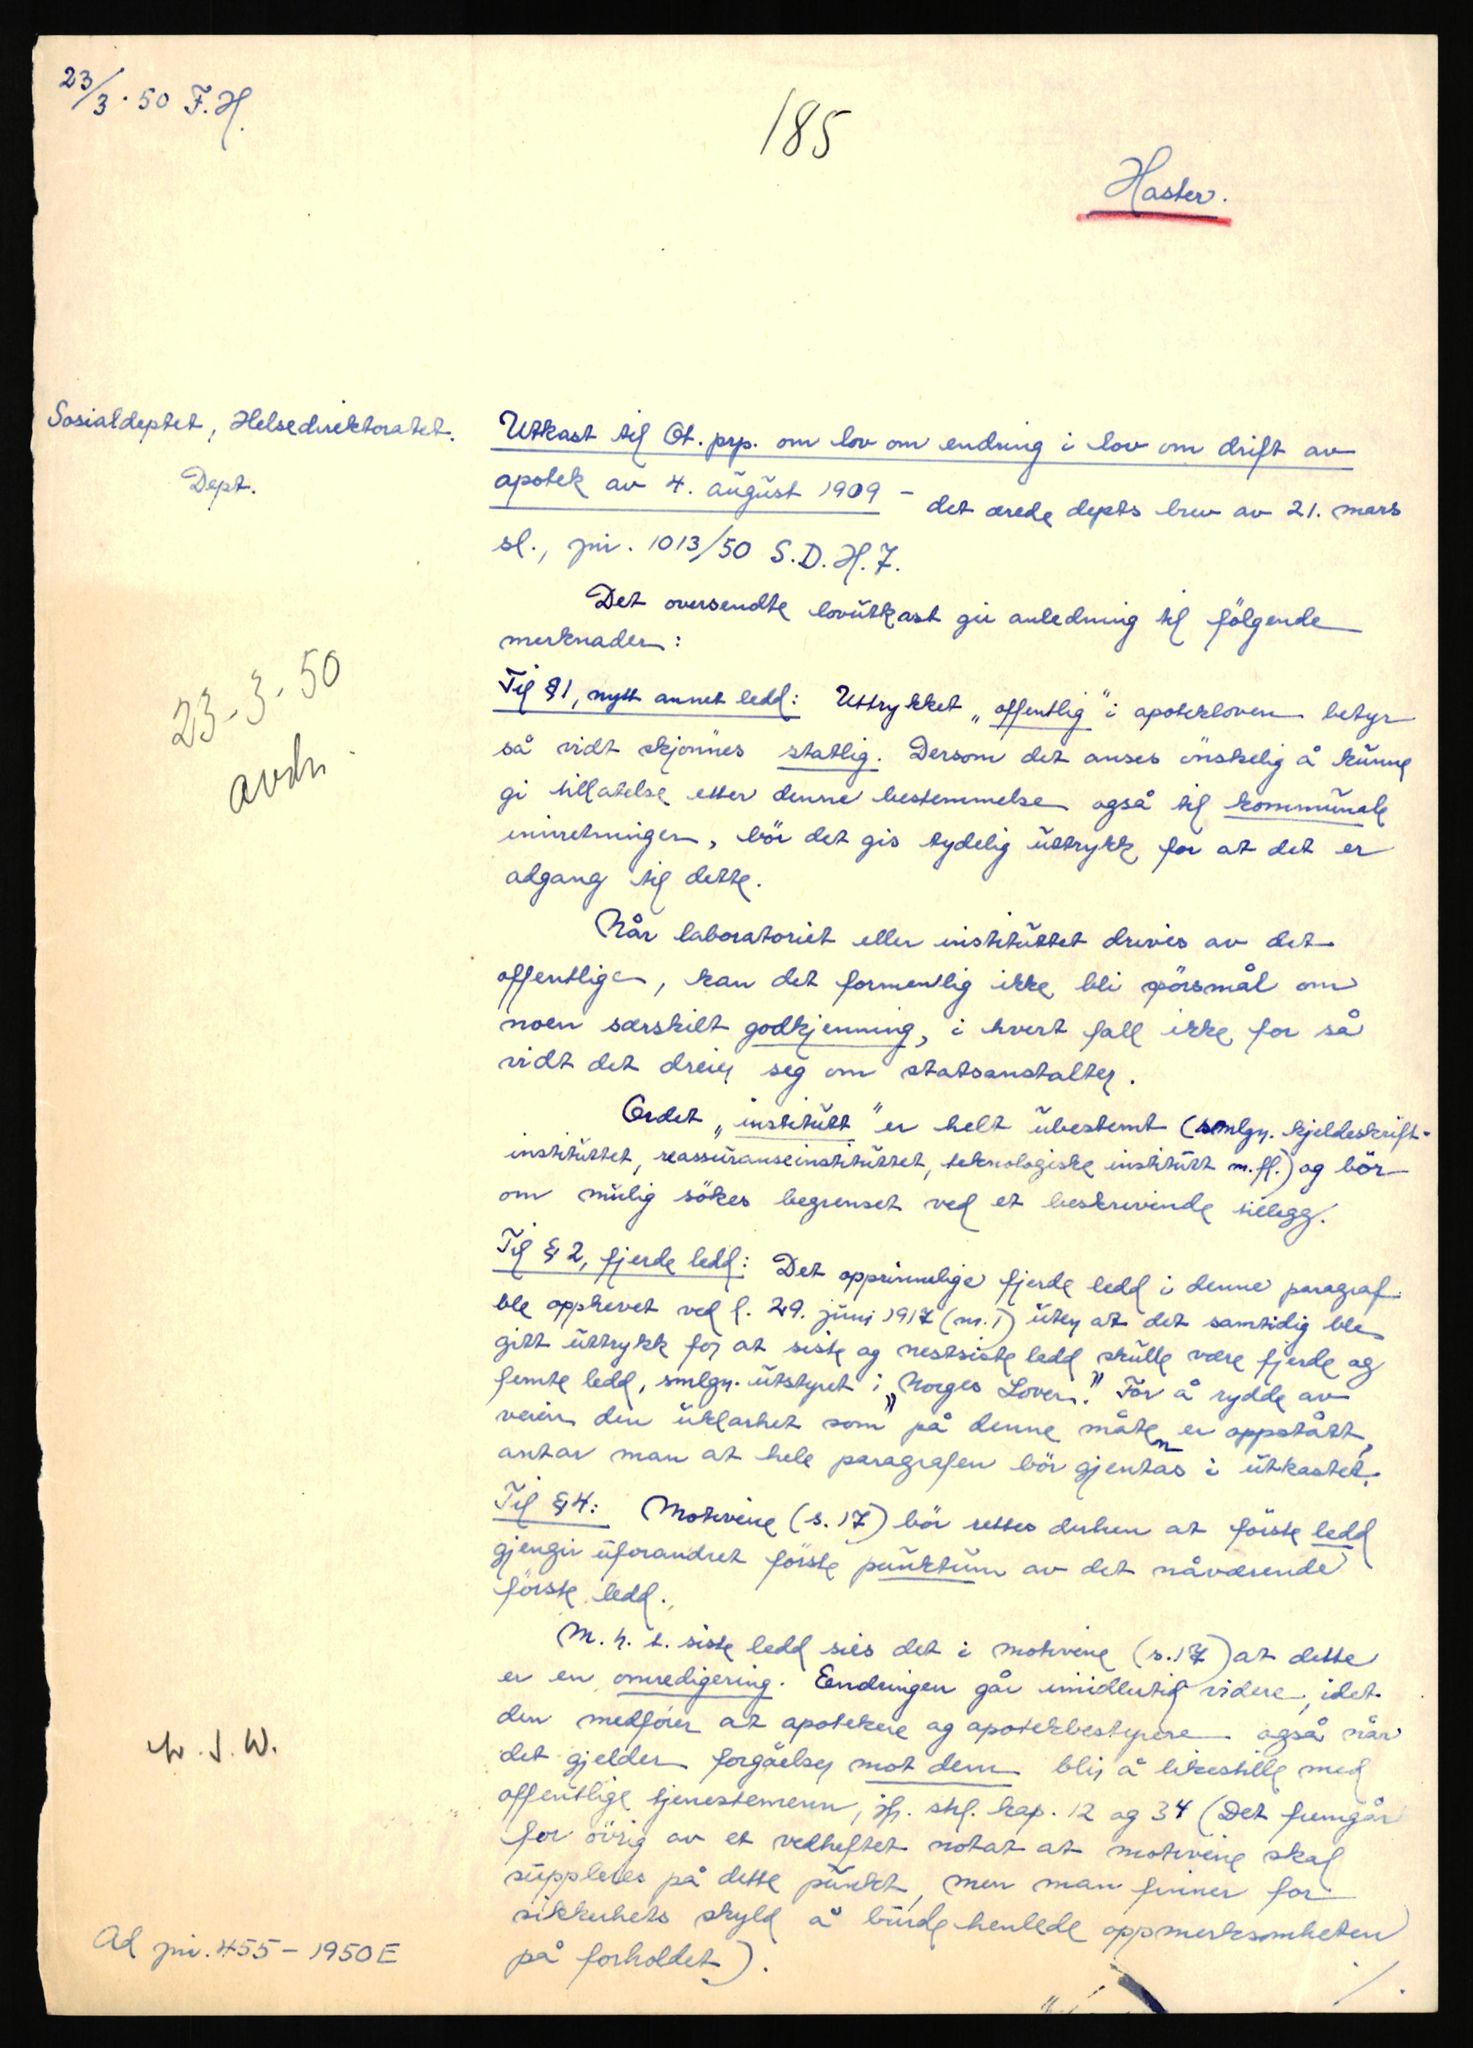 23/3.50 F.H.
185
Haster.
Sosialdeptet, Helsedirektoratet.
Dept.
Utkast til Ot. prp. om lov om endring i lov om drift av
apotek av 4. august 1909 – det ærede depts brev av 21. mars
sl., jnr. 1013/50 S.D.H.7.
Det oversendte lovutkast gir anledning til følgende
merknader:
23-3-50
Til § 1, nytt annet ledd: Uttrykket „offentlig" i apotekloven betyr
så vidt skjønnes statlig. Dersom det anses ønskelig å kunne
gi tillatelse etter denne bestemmelse også til kommunale
innretninger, bør det gis tydelig uttrykk for at det er
adgang til dette.
Når laboratoriet eller instituttet drives av det
offentlige, kan det formentlig ikke bli spørsmål om
noen særskilt godkjenning, i hvert fall ikke for så
vidt det dreier seg om statsanstalter.
Ordet „institutt" er helt ubestemt (smlgn. kjeldeskrift-
instituttet, reassuranseinstituttet, teknologiske institutt m.fl.) og bør
om mulig søkes begrenset ved et beskrivende tillegg.
Til § 2, fjerde ledd: Det opprinnelige fjerde ledd i denne paragraf
ble opphevet ved l. 29. juni 1917 (nr. 1) uten at det samtidig ble
gitt uttrykk for at siste og nestsiste ledd skulle være fjerde og
femte ledd, smlgn. utstyret i „Norges Lover". For å rydde av
veien den uklarhet som på denne måten er oppstått,
antar man at hele paragrafen bør gjentas i utkastet.
Til § 4: Motivene (s. 17) bør rettes derhen at første ledd
gjengir uforandret første punktum av det nåværende
første ledd.
M. h. t. siste ledd sies det i motivene (s. 17) at dette
er en omredigering. Endringen går imidlertid videre, idet
den medfører at apotekere og apotekbestyrere også når
det gjelder forgåelser mot dem blir å likestille med
offentlige tjenestemenn, jfr. strl. kap. 12 og 34 (Det fremgår
for øvrig av et vedheftet notat at motivene skal
suppleres på dette punkt, men man finner for
sikkerhets skyld å burde henlede oppmerksomheten
på forholdet).
Ad jnr. 455–1950 E
./.